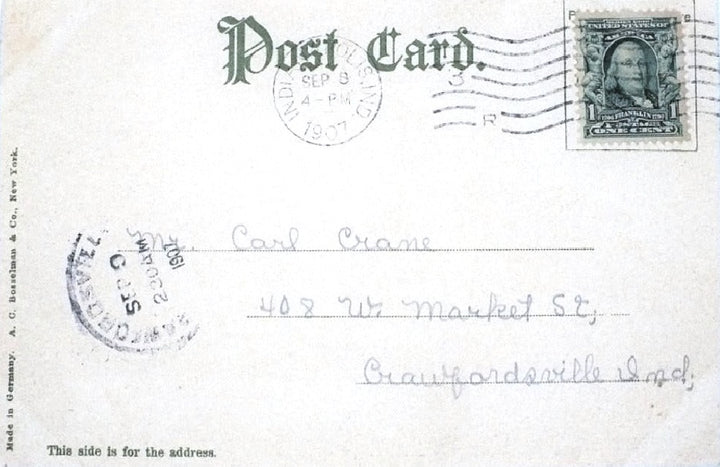 Post Card.
INDIANAPOLIS, IND
SEP 8
4-PM
1907
3
R
UNITED STATES OF
AMERICA
1 FRANKLIN 1
POSTAGE
ONE CENT
Mr. Carl Crane
408 W. Market St,
Crawfordsville Ind,
SEP
2 30 AM
1907
Made in Germany. A. C. Bosselman & Co., New York.
This side is for the address.